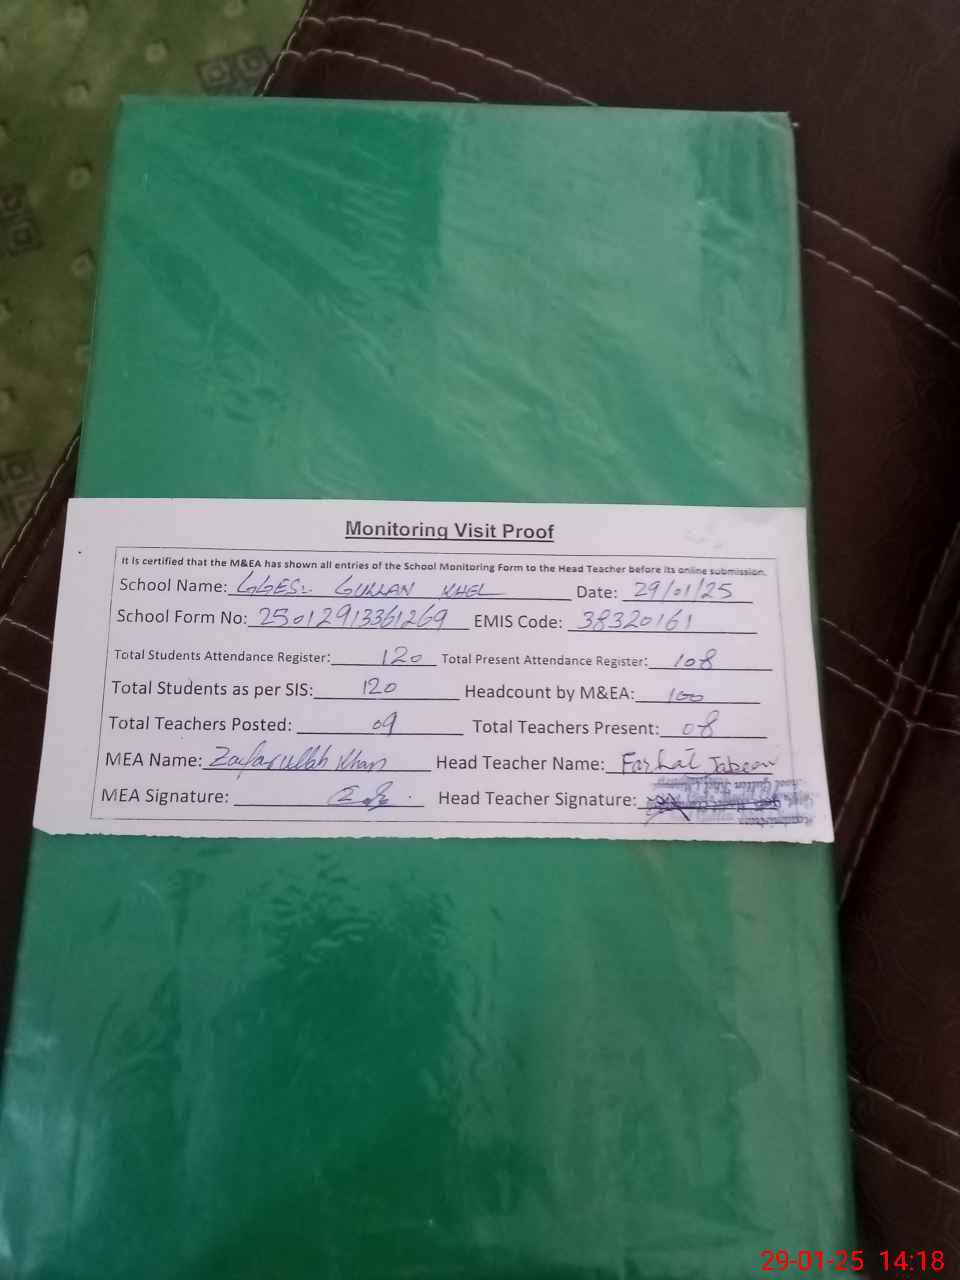 Monitoring Visit Proof
It is certified that the M&EA has shown all entries of the School Monitoring Form to the Head Teacher before its online submission.
School Name: GGES: GULLAN KHEL Date: 29/01/25
School Form No: 25012913361269 EMIS Code: 38320161
Total Students Attendance Register: 120 Total Present Attendance Register: 108
Total Students as per SIS: 120 Headcount by M&EA: 100
Total Teachers Posted: 09 Total Teachers Present: 08
MEA Name: Zafarullah Khan Head Teacher Name: Farhat Jabeen
MEA Signature: Head Teacher Signature:
29-01-25 14:18